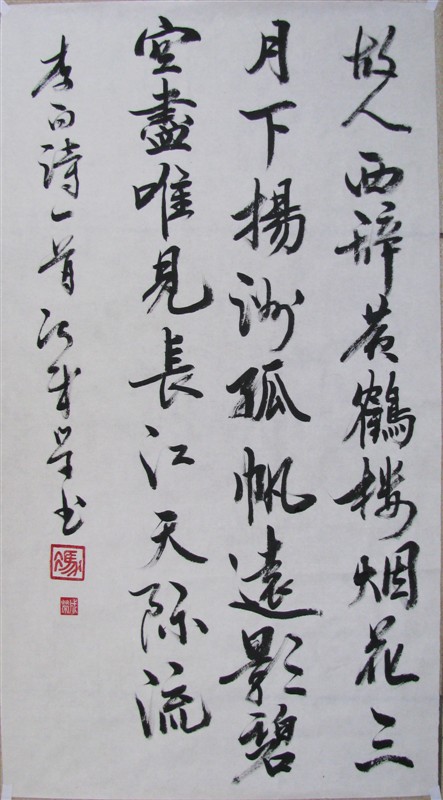 故人西辞黄鶴楼烟花三
月下揚洲孤帆遠影碧
空盡唯見長江天際流
李白詩一首 书